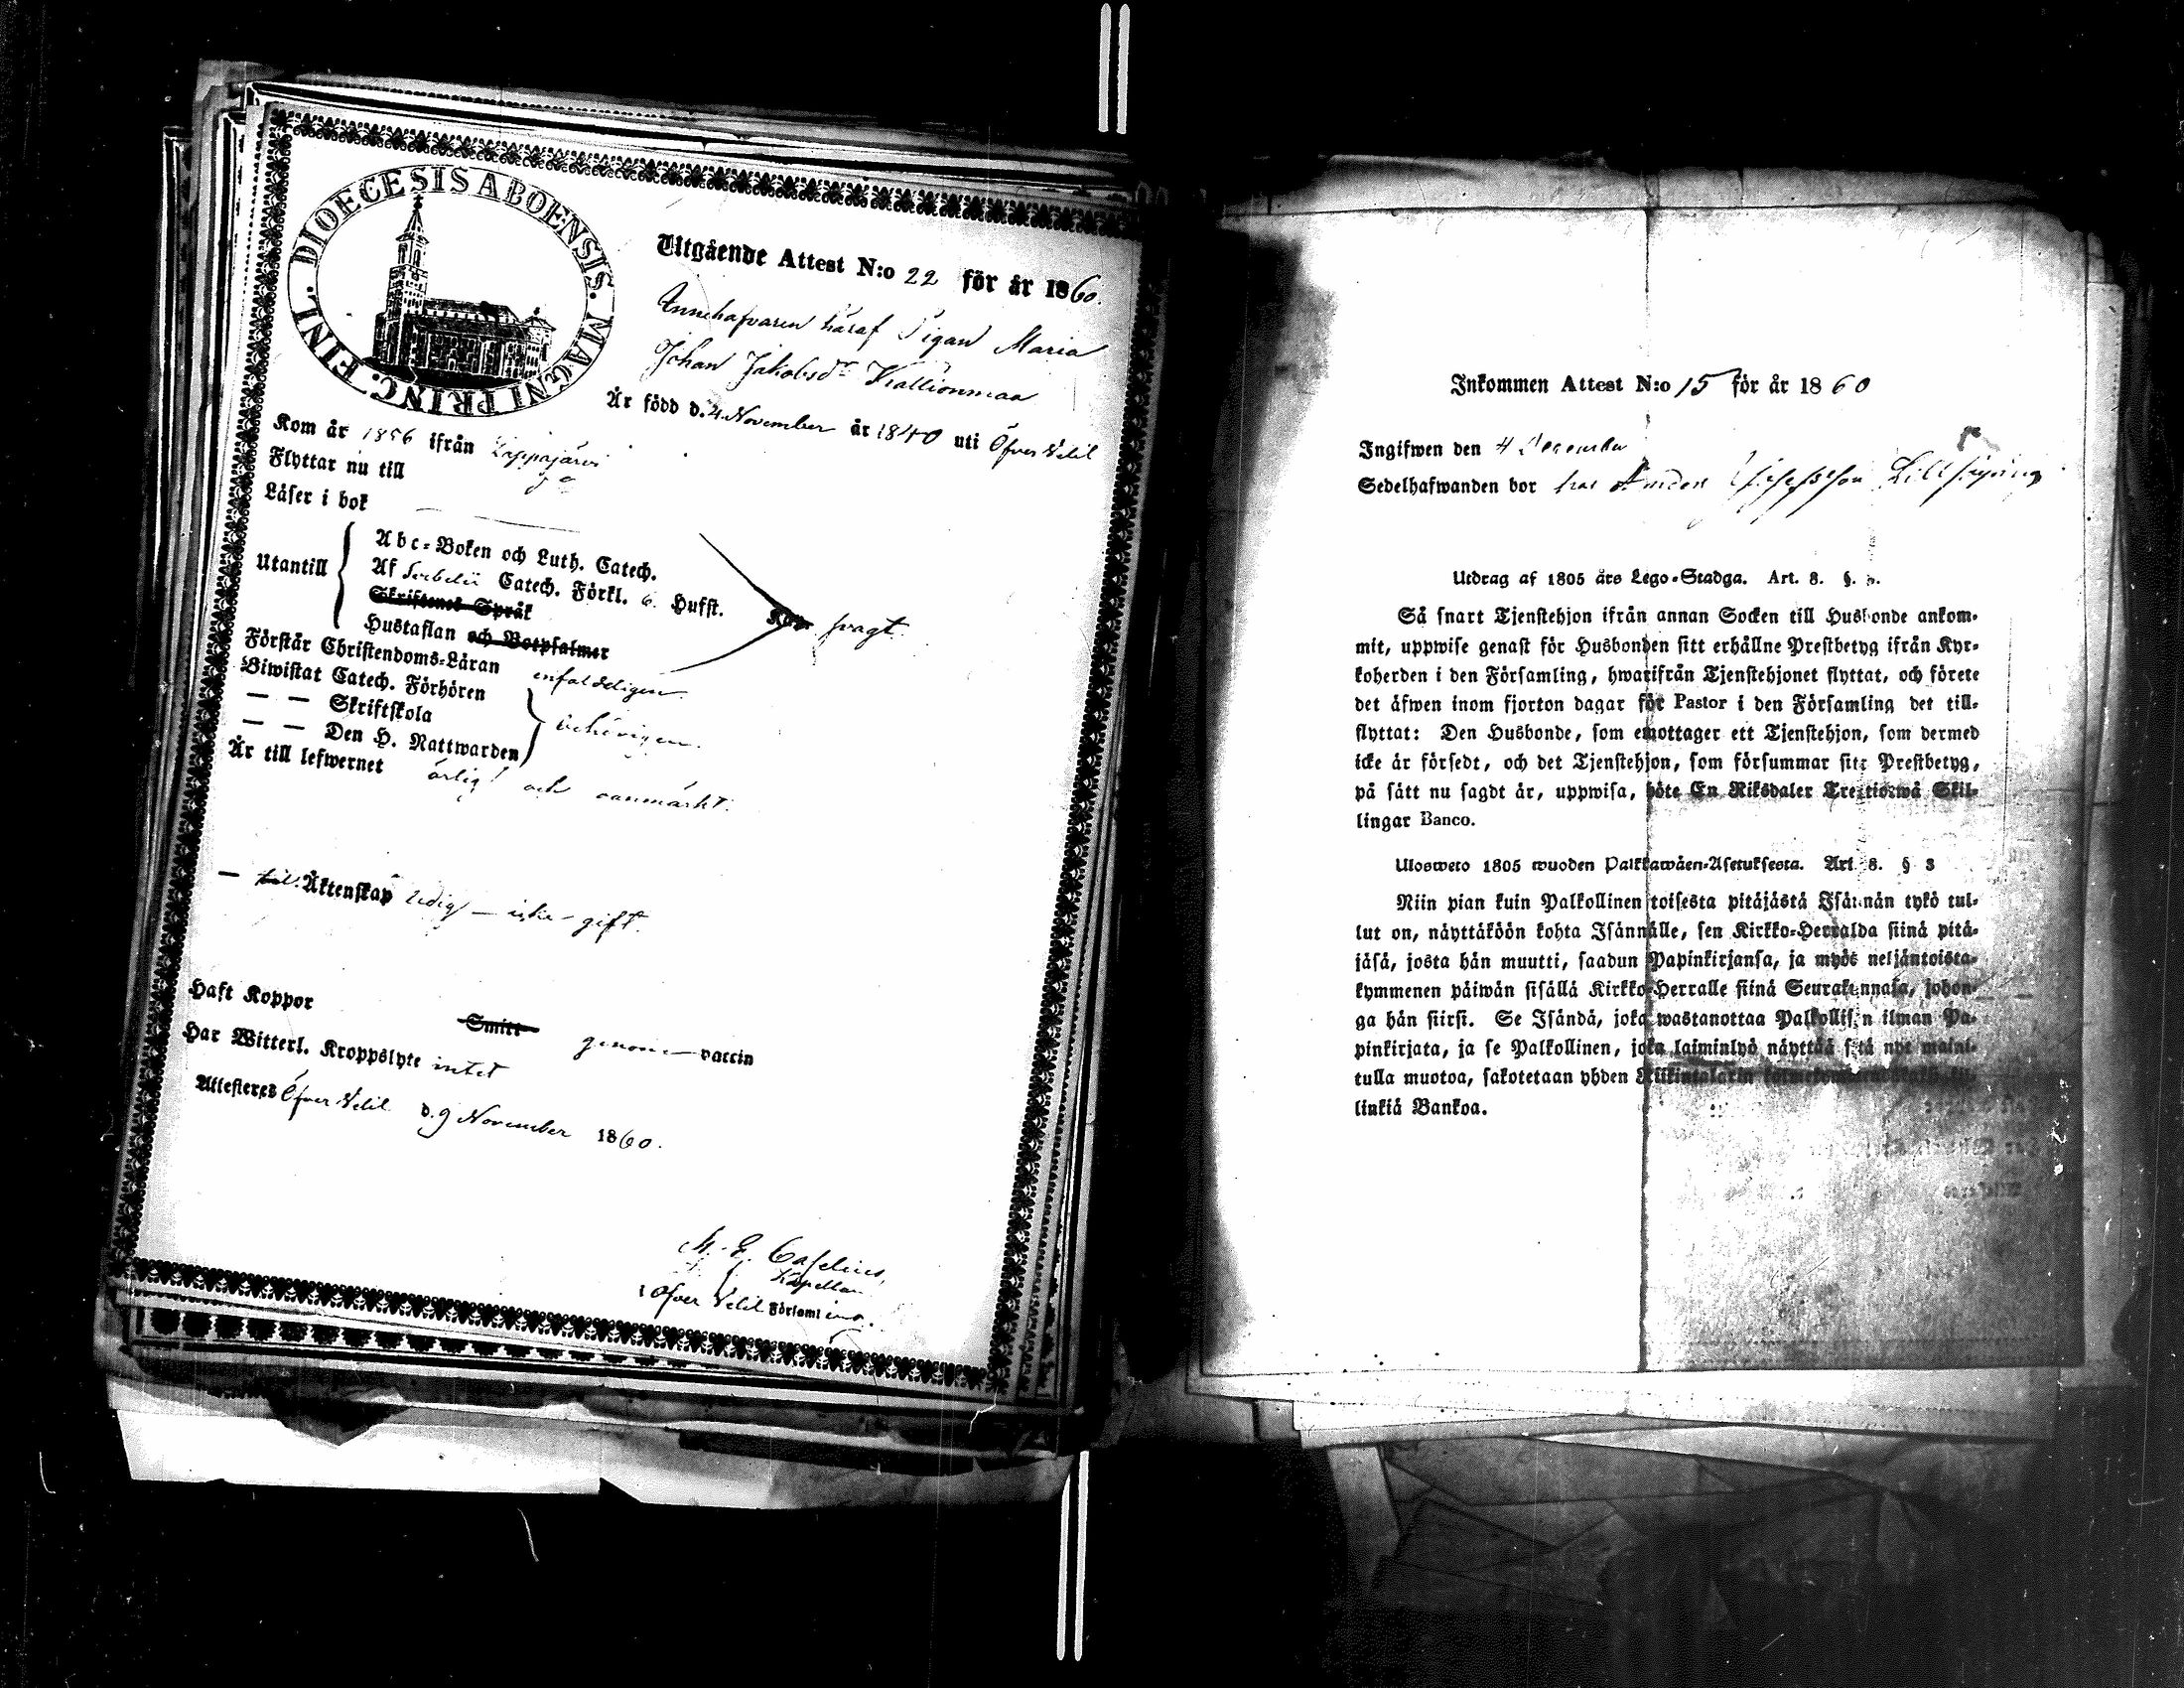 DIOECESIS ABOENSIS. MAGNI PRINC. FINL.
Utgående Attest N:o 22 för år 1860.
Innehafvaren häraf Pigan Maria
Johan Jakobsdr Kallionmaa
Är född d. 4 November år 1840 uti Öfver Vetil
Kom år 1856 ifrån Lappajärvi
Flyttar nu till
Läser i bok
Utantill
Abc-Boken och Luth. Catech.
Af Svebelii Catech. Förkl. 6. Hufst.
Skriftenes Språk
Hustaflan och Botpsalmer
Kan svagt.
Förstår Christendoms-Läran enfaldeligen.
Biwistat Catech. Förhören
— — Skriftskola
— — Den H. Nattwarden
behörigen.
Är till lefwernet ärlig och oanmärkt.
— till Äktenskap ledig — icke gift.
Haft Koppor Smitt genom vaccin
Har Witterl. Kroppslyte intet
Attesteres Öfver Vetil d. 9 November 1860.
Kapellan
i Öfver Vetil Församling.
Inkommen Attest N:o 15 för år 1860
Ingifwen den 4 December
Sedelhafwanden bor hos
Utdrag af 1805 års Lego-Stadga. Art. 8. §.
Så snart Tjenstehjon ifrån annan Socken till Husbonde ankom-
mit, uppwise genast för Husbonden sitt erhållne Prestbetyg ifrån Kyr-
koherden i den Församling, hwarifrån Tjenstehjonet flyttat, och förete
det äfwen inom fjorton dagar för Pastor i den Församling det till-
flyttat: Den Husbonde, som emottager ett Tjenstehjon, som dermed
icke är försedt, och det Tjenstehjon, som försummar sitt Prestbetyg,
på sätt nu sagdt är, uppwisa, böte En Riksdaler Trettiotwå Skil-
lingar Banco.
Ulosweto 1805 wuoden Palkkawäen-Asetuksesta. Art. 8. § 3
Niin pian kuin Palkollinen toisesta pitäjästä Isännän tykö tul-
lut on, näyttäköön kohta Isännälle, sen Kirkko-Herralda siinä pitä-
jäsä, josta hän muutti, saadun Papinkirjansa, ja myös neljäntoista-
kymmenen päiwän sisällä Kirkko-Herralle siinä Seurakunnasa, johon-
ga hän siirsi. Se Isändä, joka wastanottaa Palkollisen ilman Pa-
pinkirjata, ja se Palkollinen, joka laiminlyö näyttää sitä nyt maini-
tulla muotoa, sakotetaan yhden Riikintalarin
linkiä Bankoa.